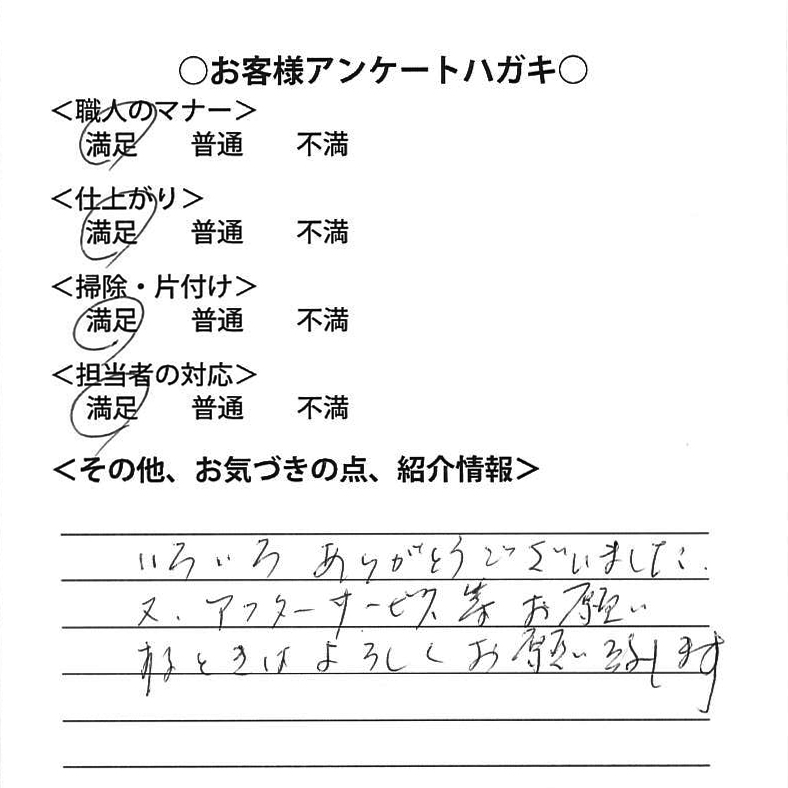 ○お客様アンケートハガキ○
＜職人のマナー＞
満足 普通 不満
＜仕上がり＞
満足 普通 不満
＜掃除・片付け＞
満足 普通 不満
＜担当者の対応＞
満足 普通 不満
＜その他、お気づきの点、紹介情報＞
いろいろ ありがとうございました.
又、アフターサービス等お願い
するときはよろしくお願い致します